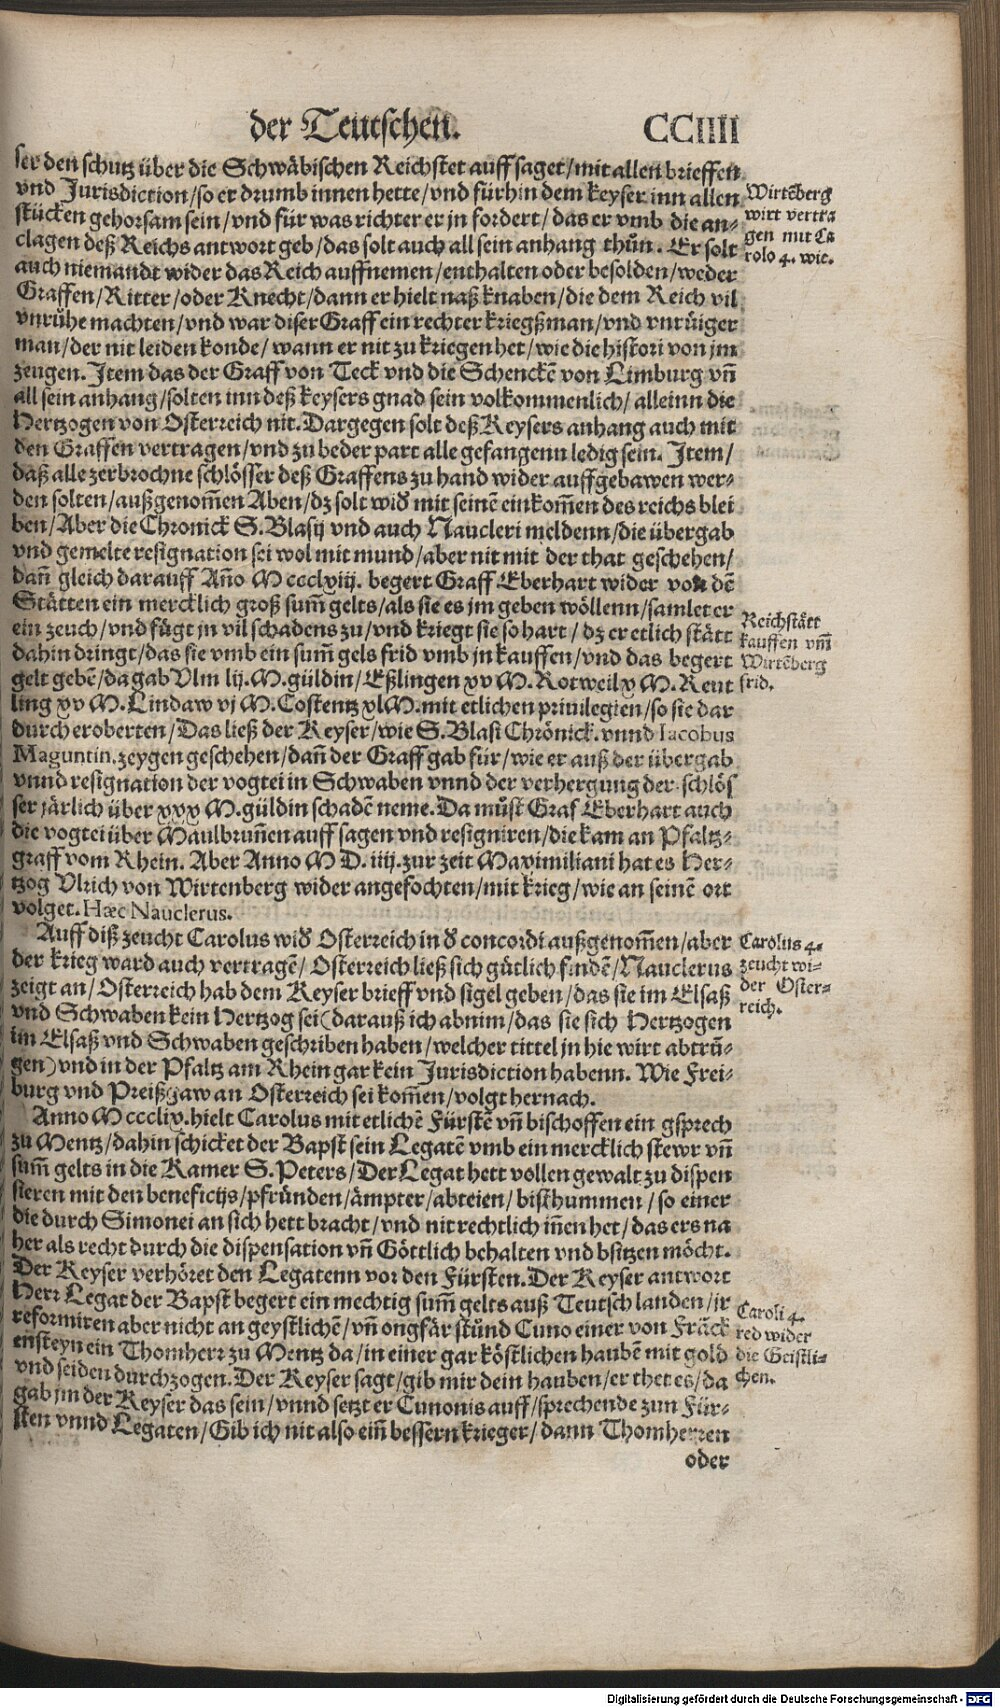 der Teutschen. CCIIII
ser den schutz über die Schwäbischen Reichstet auff saget/mit allen brieffen
vnd Jurisdiction/so er drumb innen hette/vnd fürhin dem keyser inn allen
stücken gehorsam sein/vnd für was richter er jn fordert/das er vmb die an-
clagen deß Reichs antwort geb/das solt auch all sein anhang thůn. Er solt
auch niemandt wider das Reich auffnemen/enthalten oder besolden/weder
Graffen/Ritter/oder Knecht/dann er hielt naß knaben/die dem Reich vil
vnrůhe machten/vnd war diser Graff ein rechter kriegßman/vnd vnrüiger
man/der nit leiden konde/wann er nit zu kriegen het/wie die histori von jm
zeugen. Item das der Graff von Teck vnd die Schenckē von Limburg vñ
all sein anhang/solten inn deß keysers gnad sein volkommenlich/alleinn die
Hertzogen von Osterreich nit. Dargegen solt deß Keysers anhang auch mit
den Graffen vertragen/vnd zu beder part alle gefangenn ledig sein. Item/
daß alle zerbrochne schlösser deß Graffens zu hand wider auffgebawen wer-
den solten/außgenom̃en Aben/dz solt wid̕ mit seinē einkom̃en des reichs blei
ben/Aber die Chronick S. Blasij vnd auch Naucleri meldenn/die übergab
vnd gemelte resignation sei wol mit mund/aber nit mit der that geschehen/
dañ gleich darauff Año M ccclxiij. begert Graff Eberhart wider von dē
Stätten ein mercklich groß sum̃ gelts/als sie es jm geben wöllenn/samlet er
ein zeuch/vnd fügt jn vil schadens zu/vnd kriegt sie so hart/dz er etlich stätt
dahin dringt/das sie vmb ein sum̃ gels frid vmb jn kauffen/vnd das begert
gelt gebē/da gab Vlm lij. M. güldin/Eßlingen xv M. Rotweil x M. Reut
ling xv M. Lindaw vj M. Costentz xl M. mit etlichen priuilegien/so sie dar
durch eroberten/Das ließ der Keyser/wie S. Blasi Chrönick. vnnd Iacobus
Maguntin. zeygen geschehen/dañ der Graff gab für/wie er auß der übergab
vnnd resignation der vogtei in Schwaben vnnd der verhergung der schlös
ser järlich über xxx M. güldin schadē neme. Da můst Graf Eberhart auch
die vogtei über Maulbruñen auff sagen vnd resigniren/die kam an Pfaltz-
graff vom Rhein. Aber Anno M D. iiij. zur zeit Maximiliani hat es Her-
tzog Vlrich von Wirtenberg wider angefochten/mit krieg/wie an seinē ort
volget. Hæc Nauclerus.
Auff diß zeucht Carolus wid̕ Osterreich in d̕ concordi außgenom̃en/aber
der krieg ward auch vertragē/Osterreich ließ sich gütlich findē/Nauclerus
zeigt an/Osterreich hab dem Keyser brieff vnd sigel geben/das sie im Elsaß
vnd Schwaben kein Hertzog sei (darauß ich abnim/das sie sich Hertzogen
im Elsaß vnd Schwaben geschriben haben/welcher tittel jn hie wirt abtrü-
gen) vnd in der Pfaltz am Rhein gar kein Jurisdiction habenn. Wie Frei-
burg vnd Preißgaw an Osterreich sei kom̃en/volgt hernach.
Anno M ccclix. hielt Carolus mit etlichē Fürstē vñ bischoffen ein gsprech
zu Mentz/dahin schicket der Bapst sein Legatē vmb ein mercklich stewr vñ
sum̃ gelts in die Kamer S. Peters/Der Legat hett vollen gewalt zu dispen
sieren mit den beneficijs/pfründen/ämpter/abteien/bisthummen/so einer
die durch Simonei an sich hett bracht/vnd nit rechtlich iñen het/das ers na
her als recht durch die dispensation vñ Göttlich behalten vnd bsitzen möcht.
Der Keyser verhöret den Legatenn vor den Fürsten. Der Keyser antwort
Herr Legat der Bapst begert ein mechtig sum̃ gelts auß Teutsch landen/jr
reformiren aber nicht an geystlichē/vñ ongfär stůnd Cuno einer von Frāck
ensteyn ein Thomherr zu Mentz da/in einer gar köstlichen haubē mit gold
vnd seiden durchzogen. Der Keyser sagt/gib mir dein hauben/er thet es/da
gab jm der Keyser das sein/vnnd setzt er Cunonis auff/sprechende zun Für-
sten vnnd Legaten/Gib ich nit also eiñ bessern krieger/dann Thomherren
oder
Wirtēberg
wirt vertra
gen mit Ca
rolo 4. wie.
Reichstätt
kauffen vm̃
Wirtēberg
frid.
Carolus 4.
zeucht wi-
der Oster-
reich.
Caroli 4.
red wider
die Geistli-
chen.
Digitalisierung gefördert durch die Deutsche Forschungsgemeinschaft - DFG